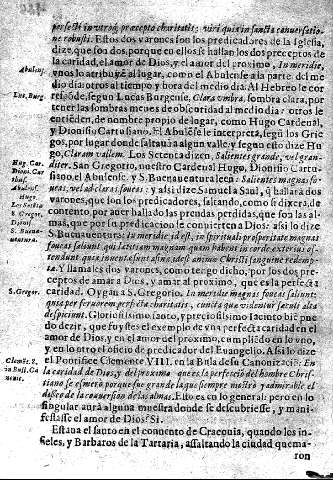 perfecti in utroq; præcepto charitatis; viri quia in sancta conuersatio-
ne robusti. Estos dos varones son los predicadores de la Iglesia,
dize, que son dos, porque en ellos se hallan los dos preceptos de
la caridad, el amor de Dios, y el amor del proximo, In meridie,
vnos lo atribuyẽ al lugar, como el Abulense a la parte del me
dio dia: otros al tiempo y hora del medio dia. Al Hebreo le cor
respõde, segun Lucas Burgense, Clara vmbra, sombra clara, por
tener las sombras menos de obscuridad al medio dia: otros le
entiẽden, de nombre propio de lugar, como Hugo Cardenal,
y Dionisio Cartusano. El Abulẽse le interpreta, segũ los Grie
gos, por lugar donde saltaua a algun valle, y segun esto dize Hu
go, Claram vallem. Los Setenta dizen, Salientes grande, vel gran-
diter. San Gregorio, nuestro Cardenal Hugo, Dionisio Cartu-
siano, el Abulense, y S. Buenauentura leen: Salientes magnas fo
ueas, vel ad claras foueas: y assi dize Samuela Saul, q̃ hallara dos
varones, que son los predicadores, saltando, como si dixera, de
contento, por auer hallado las prendas perdidas, que son las al-
mas, que por su predicacion se conuierten a Dios: assi lo dize
S. Buenauentura: In meridie, id est, in spirituali prosperitate magnas
foueas saliunt qui lætitiam magnam, quam habent in corde exterius os-
tendunt, quia inuentæ sunt asinæ, id est animæ Christi sanguine redemp-
tæ. Y llamales dos varones, como tengo dicho, por los dos pre-
ceptos de amar a Dios, y amar al proximo, que es la perfecta
caridad. Oygan a S. Gregorio. In meridie magnas foueas saliunt:
quia per feruorem perfectæ charitatis, cuncta quæ videntur sæculi alta
despiciunt. Gloriosissimo santo, y preciosissimo Iacinto biẽ pue
do dezir, que fuystes el exemplo de vna perfecta caridad en el
amor de Dios, y en el amor del proximo, cumpliẽdo en lo vno,
y en lo otro el oficio de predicador del Euangelio. Assi lo dize
el Pontifice Clemente VIII. en la Bula de su Canonizaciõ: En
la caridad de Dios, y del proximo que es la perfeciõ del hombre Chris-
tiano se esmerò porque fue grande la que siempre mostrò y admirable el
desseo de la conuersion de las almas. Esto es en lo general: pero en lo
singular aurà alguna muestra donde se descubriesse, y mani-
festasse el amor de Dios? Si.
Estaua el santo en el conuento de Cracouia, quando los in-
fieles, y Barbaros de la Tartaria, assaltando la ciudad quema-
ron
Abulens.
Luc. Burg.
Hug. Car.
Dioni. Car
thus.
Abulens.
Hugo.
Los Setenta
S. Gregor.
Dionis.
S. Buena-
uentura.
S. Gregor.
Clemẽt. 8.
in Bull. Ca
noniz.